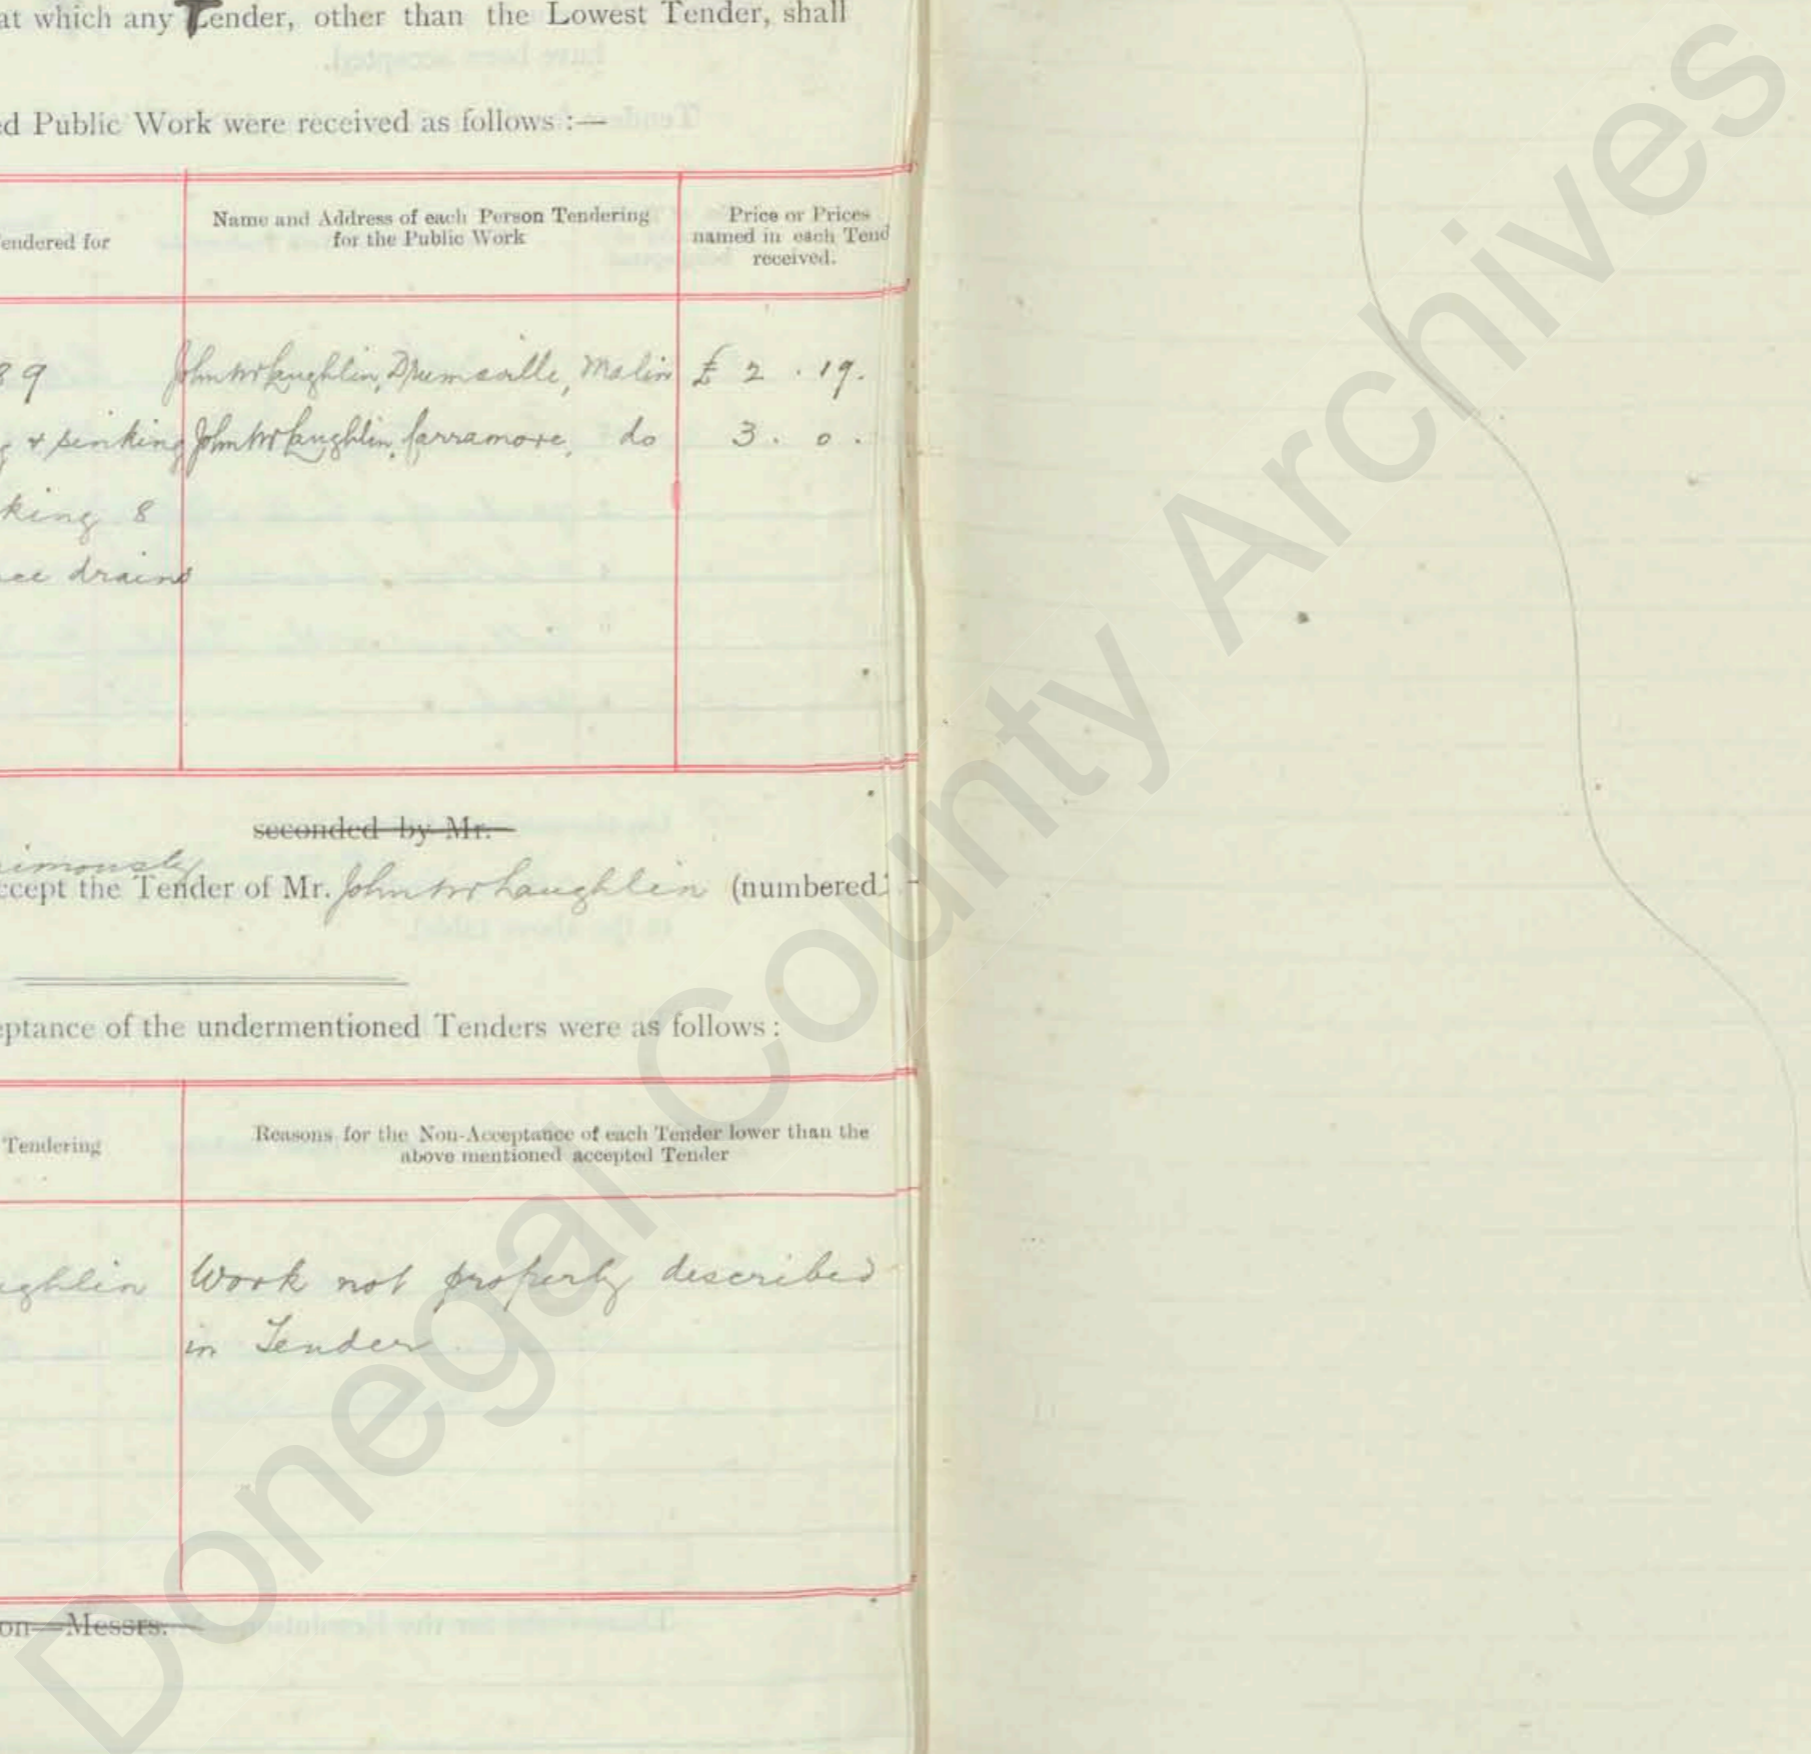 at which any Tender, other than the Lowest Tender, shall
ed Public Work were received as follows :—
endered for
Name and Address of each Person Tendering
for the Public Work
Price or Prices
named in each Tend
received.
89 John McLaughlin, Drumaville, Malin £ 2 . 19.
g & sinking John McLaughlin, Carramore, do 3 . 0 .
king 8
ce drains
seconded by Mr.
imously
ccept the Tender of Mr. John McLaughlin (numbered
eptance of the undermentioned Tenders were as follows :
Tendering
Reasons for the Non-Acceptance of each Tender lower than the
above mentioned accepted Tender
ghlin Work not properly described
in Tender
on—Messrs.
Donegal County Archives